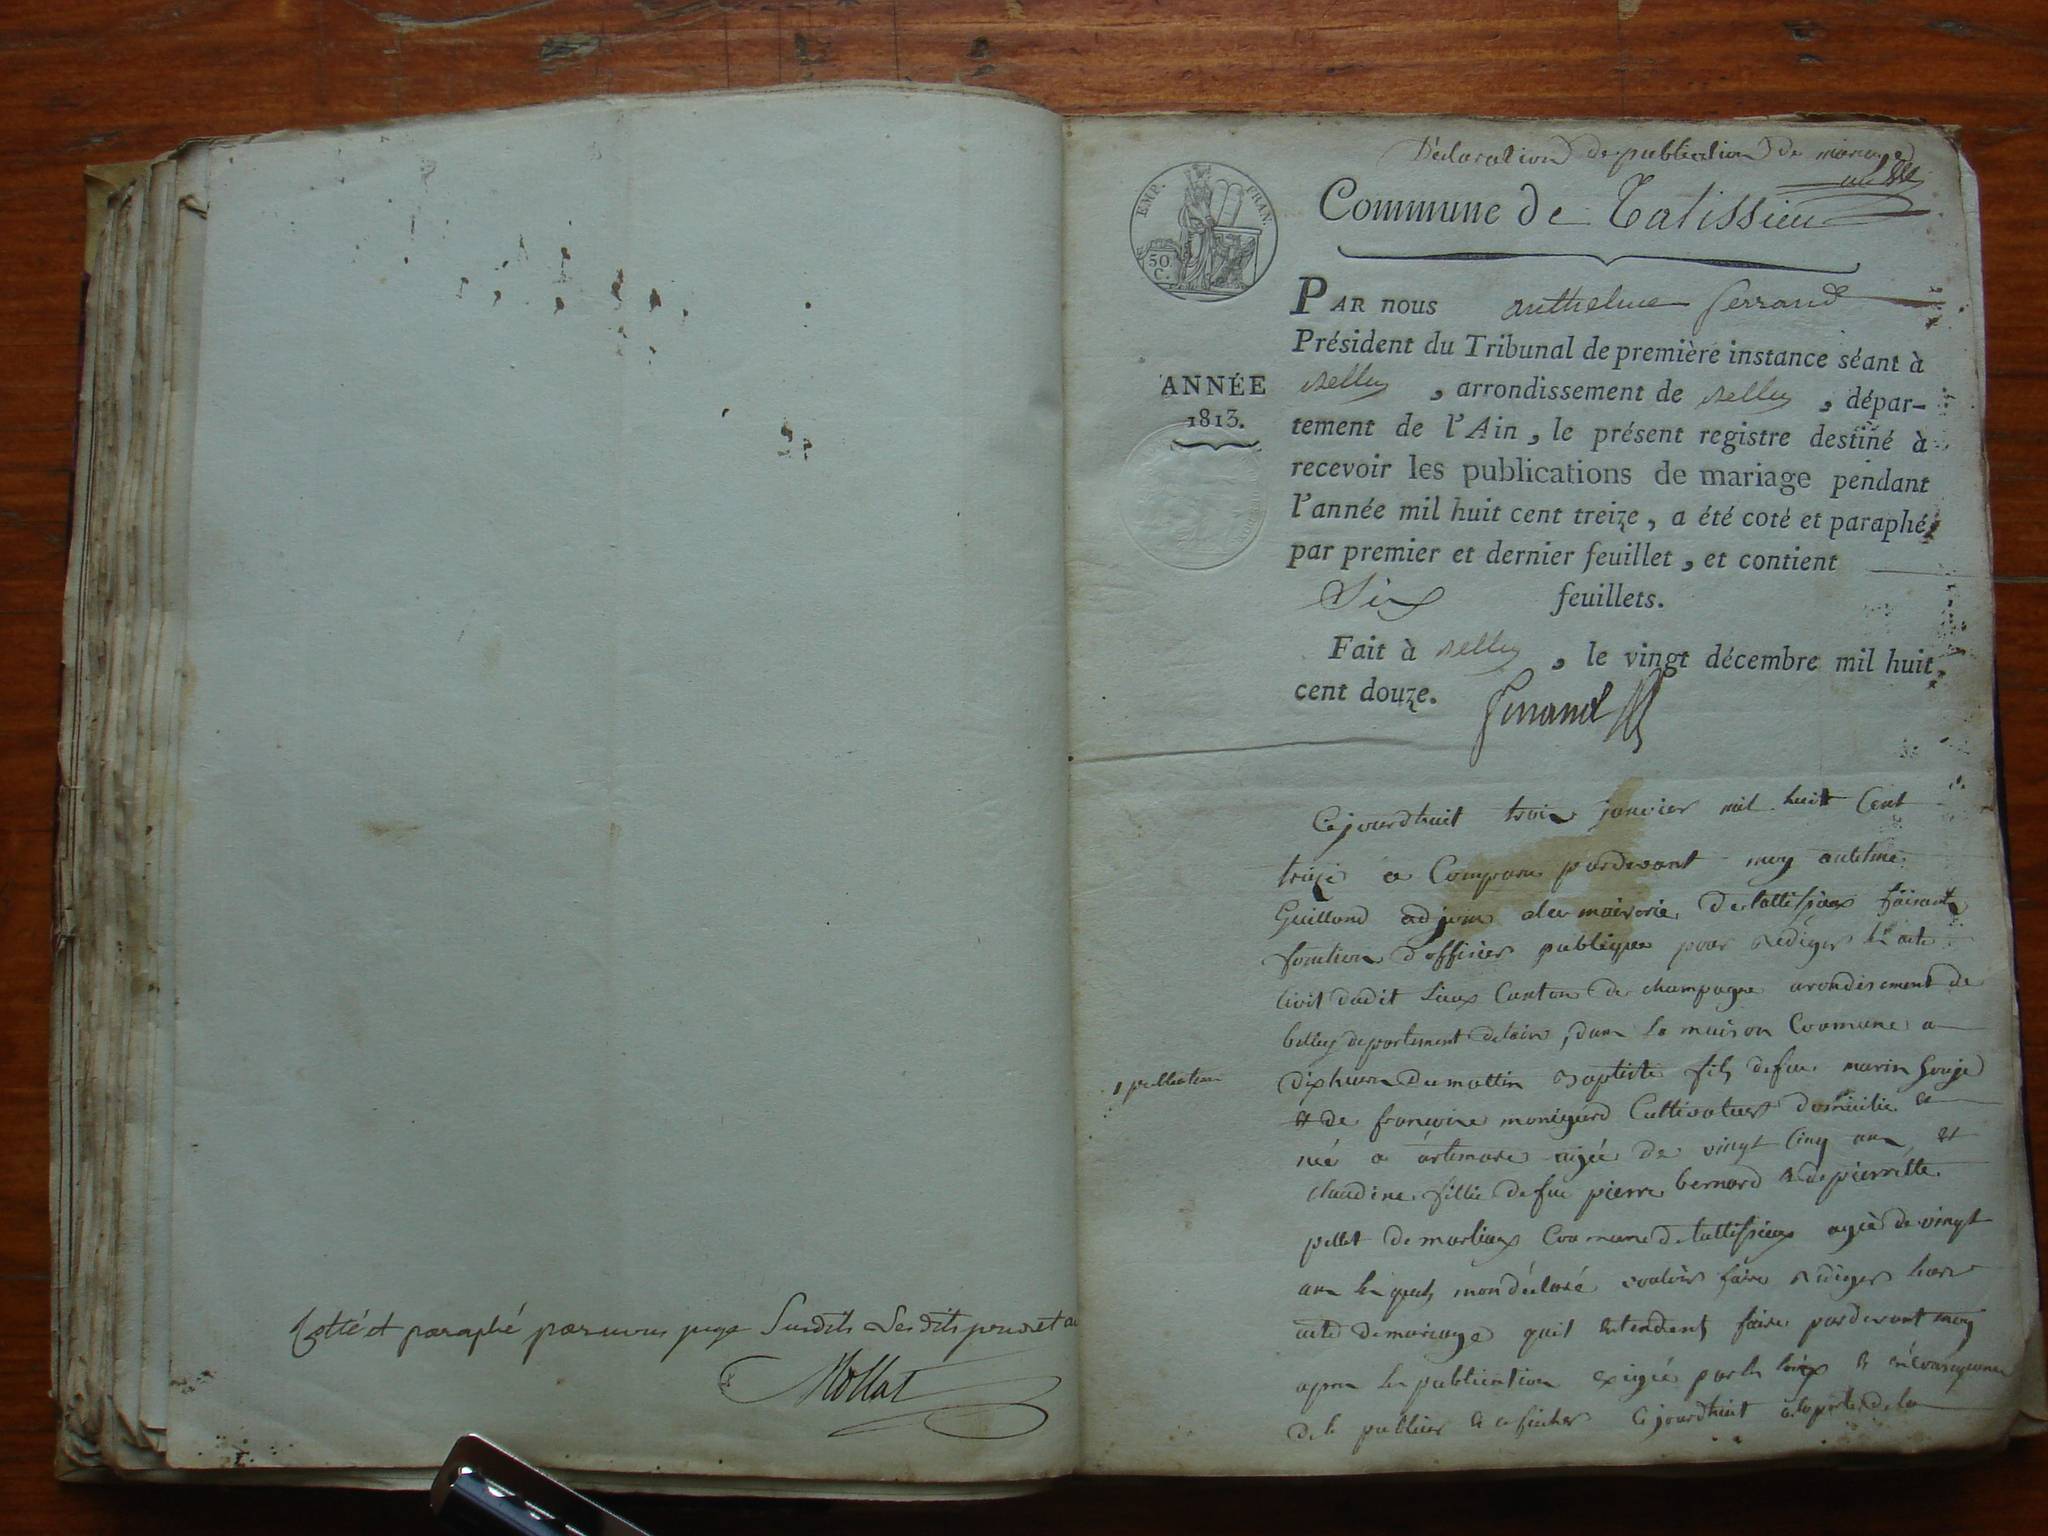 Cotté et paraphé par nous juge Susdits Lesdits jour et an
Mollat
Déclaration de publication de mariage
EMP. FRAN.
50
C.
Commune de Talissieu
PAR NOUS anthelme ferrand
Président du Tribunal de première instance séant à
Belley , arrondissement de Belley , dépar-
ANNÉE
1813.
tement de l'Ain, le présent registre destiné à
recevoir les publications de mariage pendant
l'année mil huit cent treize, a été coté et paraphé
par premier et dernier feuillet, et contient
Six feuillets.
Fait à Belley , le vingt décembre mil huit
cent douze. ferrand
Cejourdhuit trois janvier mil huit Cent
treize a Comparu pardevant moy antelme
Guilland adjoin alau mairerie De tallissieux faisant
fonction d'officier publique pour rediger les acte
civil dudit Lieux Canton de champagne arondisement de
belley departement delain, dans la maison Commune a
1 publication
dix heure Du mattin Baptiste fils defeu marin Gouje
& de françoise monigard Cultivateur domicilié &
né a artemare agée de vingt Cinq ans et
claudine fillie defeu pierre bernard & de pierrette
pellet De marlieux Commune De tallissieux agée de vingt
ans les quels mon déclaré vouloir faire rediger leur
acte De mariage quil entendent faire pardevant moy
apres les publication exigée par les loix & en consequence
de la publier & afficher Cejourdhuit a la porte de la